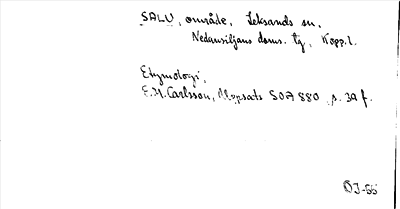 SALU, område, Leksands sn.
Nedansiljans doms. tg, Kopp.l.
Etymologi,
E.M. Carlsson, Uppsats SOA 880, s. 39 f.
ÖJ-55